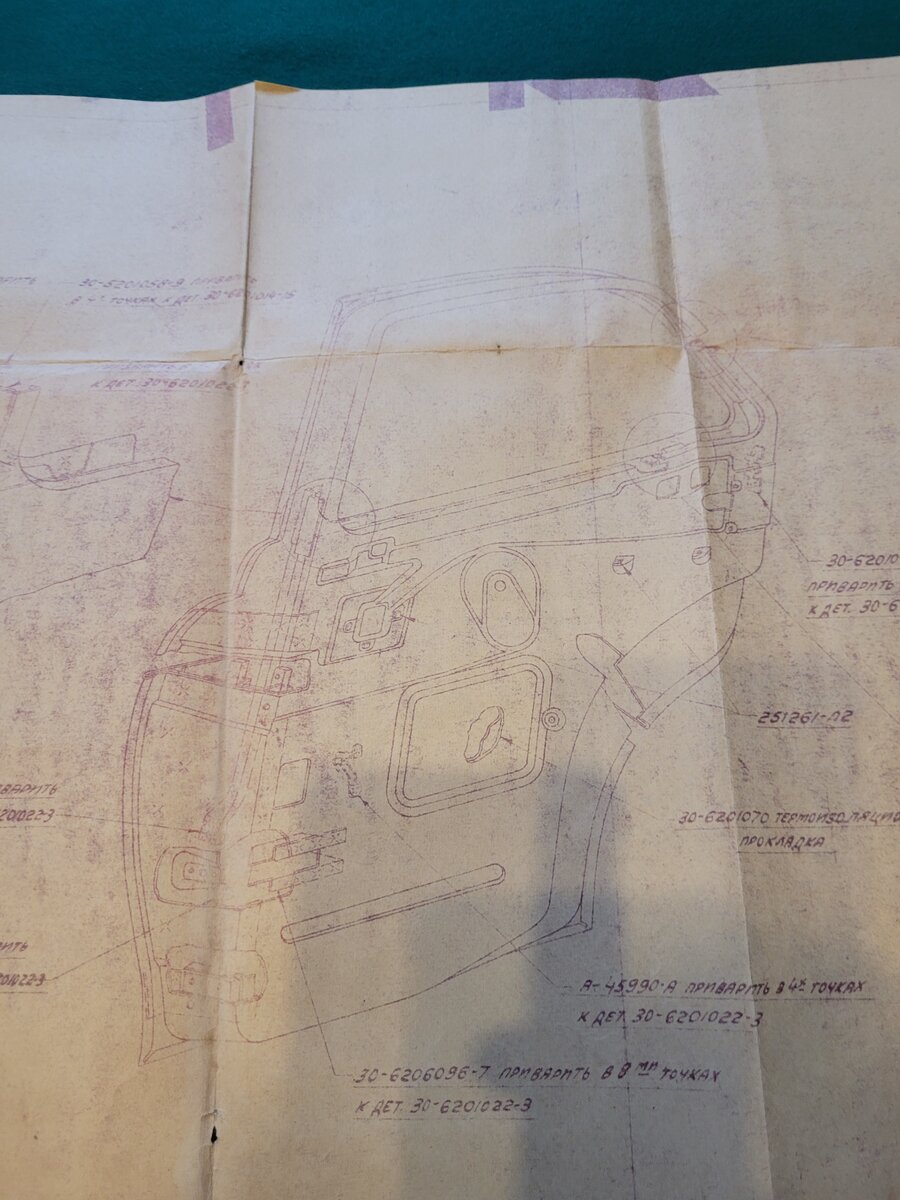 30-6201058-9 ПРИВАРИТЬ
В 4х ТОЧКАХ К ДЕТ. 30-6201014-15
К ДЕТ. 30-6201022-3
30-62010
ПРИВАРИТЬ
К ДЕТ. 30-6
251261-П2
ВАРИТЬ
201022-3
30-6201070 ТЕРМОИЗОЛЯЦИО
ПРОКЛАДКА
ИТЬ
201022-3
А-45990-А ПРИВАРИТЬ В 4х ТОЧКАХ
К ДЕТ. 30-6201022-3
30-6206096-7 ПРИВАРИТЬ В 8ми ТОЧКАХ
К ДЕТ. 30-6201022-3